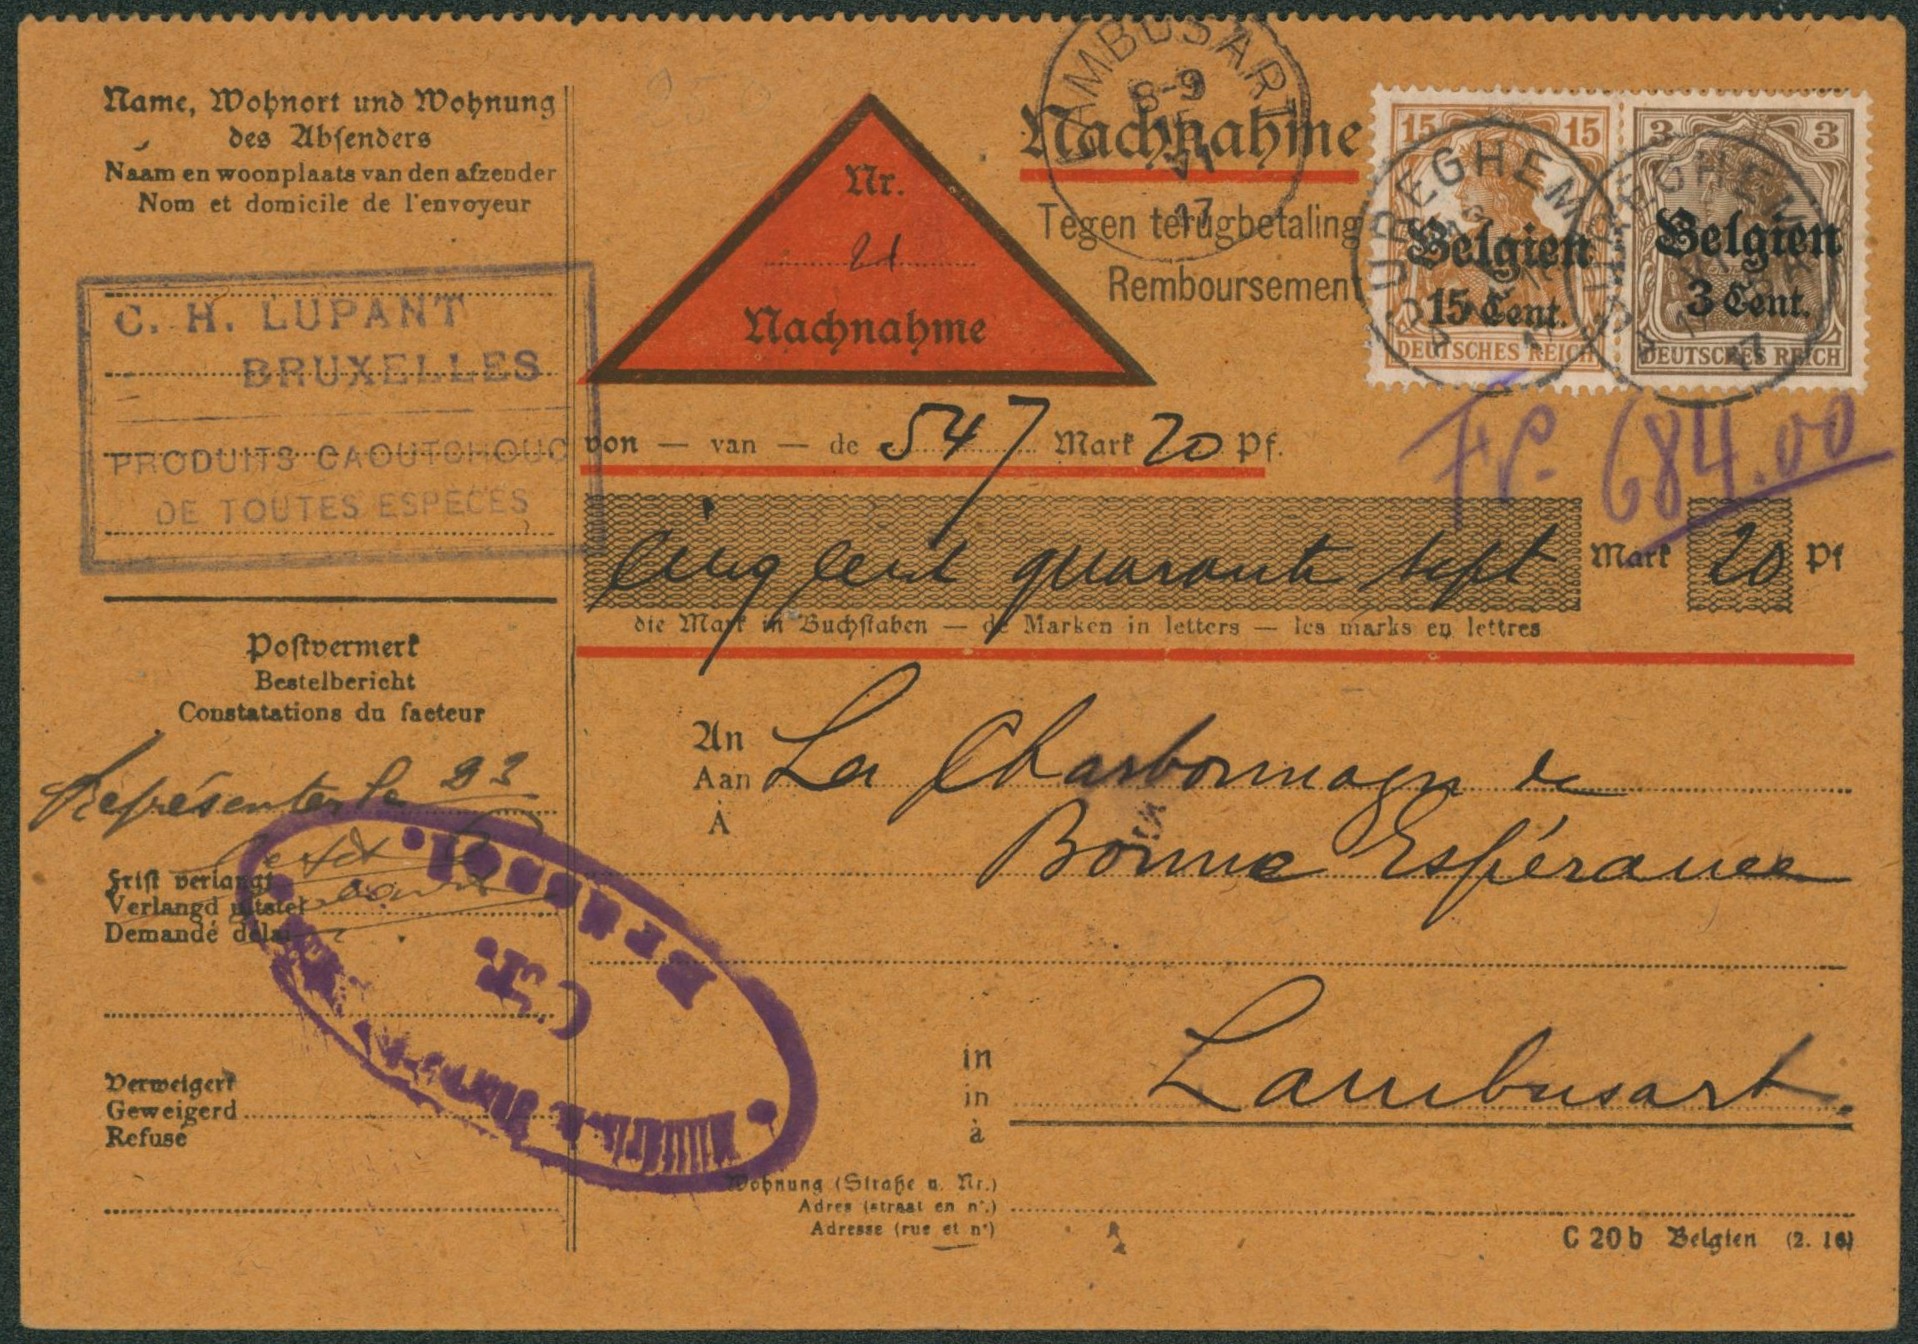 Name, Wohnort und Wohnung
des Absenders
Naam en woonplaats van den afzender
Nom et domicile de l'envoyeur
C. H. LUPANT
BRUXELLES
PRODUITS CAOUTCHOUC
DE TOUTES ESPÈCES
Postvermerk
Bestelbericht
Constatations du facteur
Représenter le 23
Frist verlangt
Verlangd uitstel
Demandé délai
Verweigert
Geweigerd
Refusé
Nr.
21
Nachnahme
LAMBUSART
8-9
VI
17
Nachnahme
Tegen terugbetaling
Remboursement
15 15
Belgien
15 Cent.
DEUTSCHES REICH
3 3
Belgien
3 Cent.
DEUTSCHES REICH
CUREGHEM
CUREGHEM
17
von — van — de 547 Mark 20 Pf.
Fr. 684.00
Cinq cent quarante sept Mark 20 Pf
die Mark in Buchstaben — de Marken in letters — les marks en lettres
An
Aan
À
La Charbonnage de
Bonne Espérance
in
in
à
Lambusart.
Wohnung (Straße u. Nr.)
Adres (straat en nr.)
Adresse (rue et no)
C 20 b Belgien (2. 16)
Brüssel.
C.T.